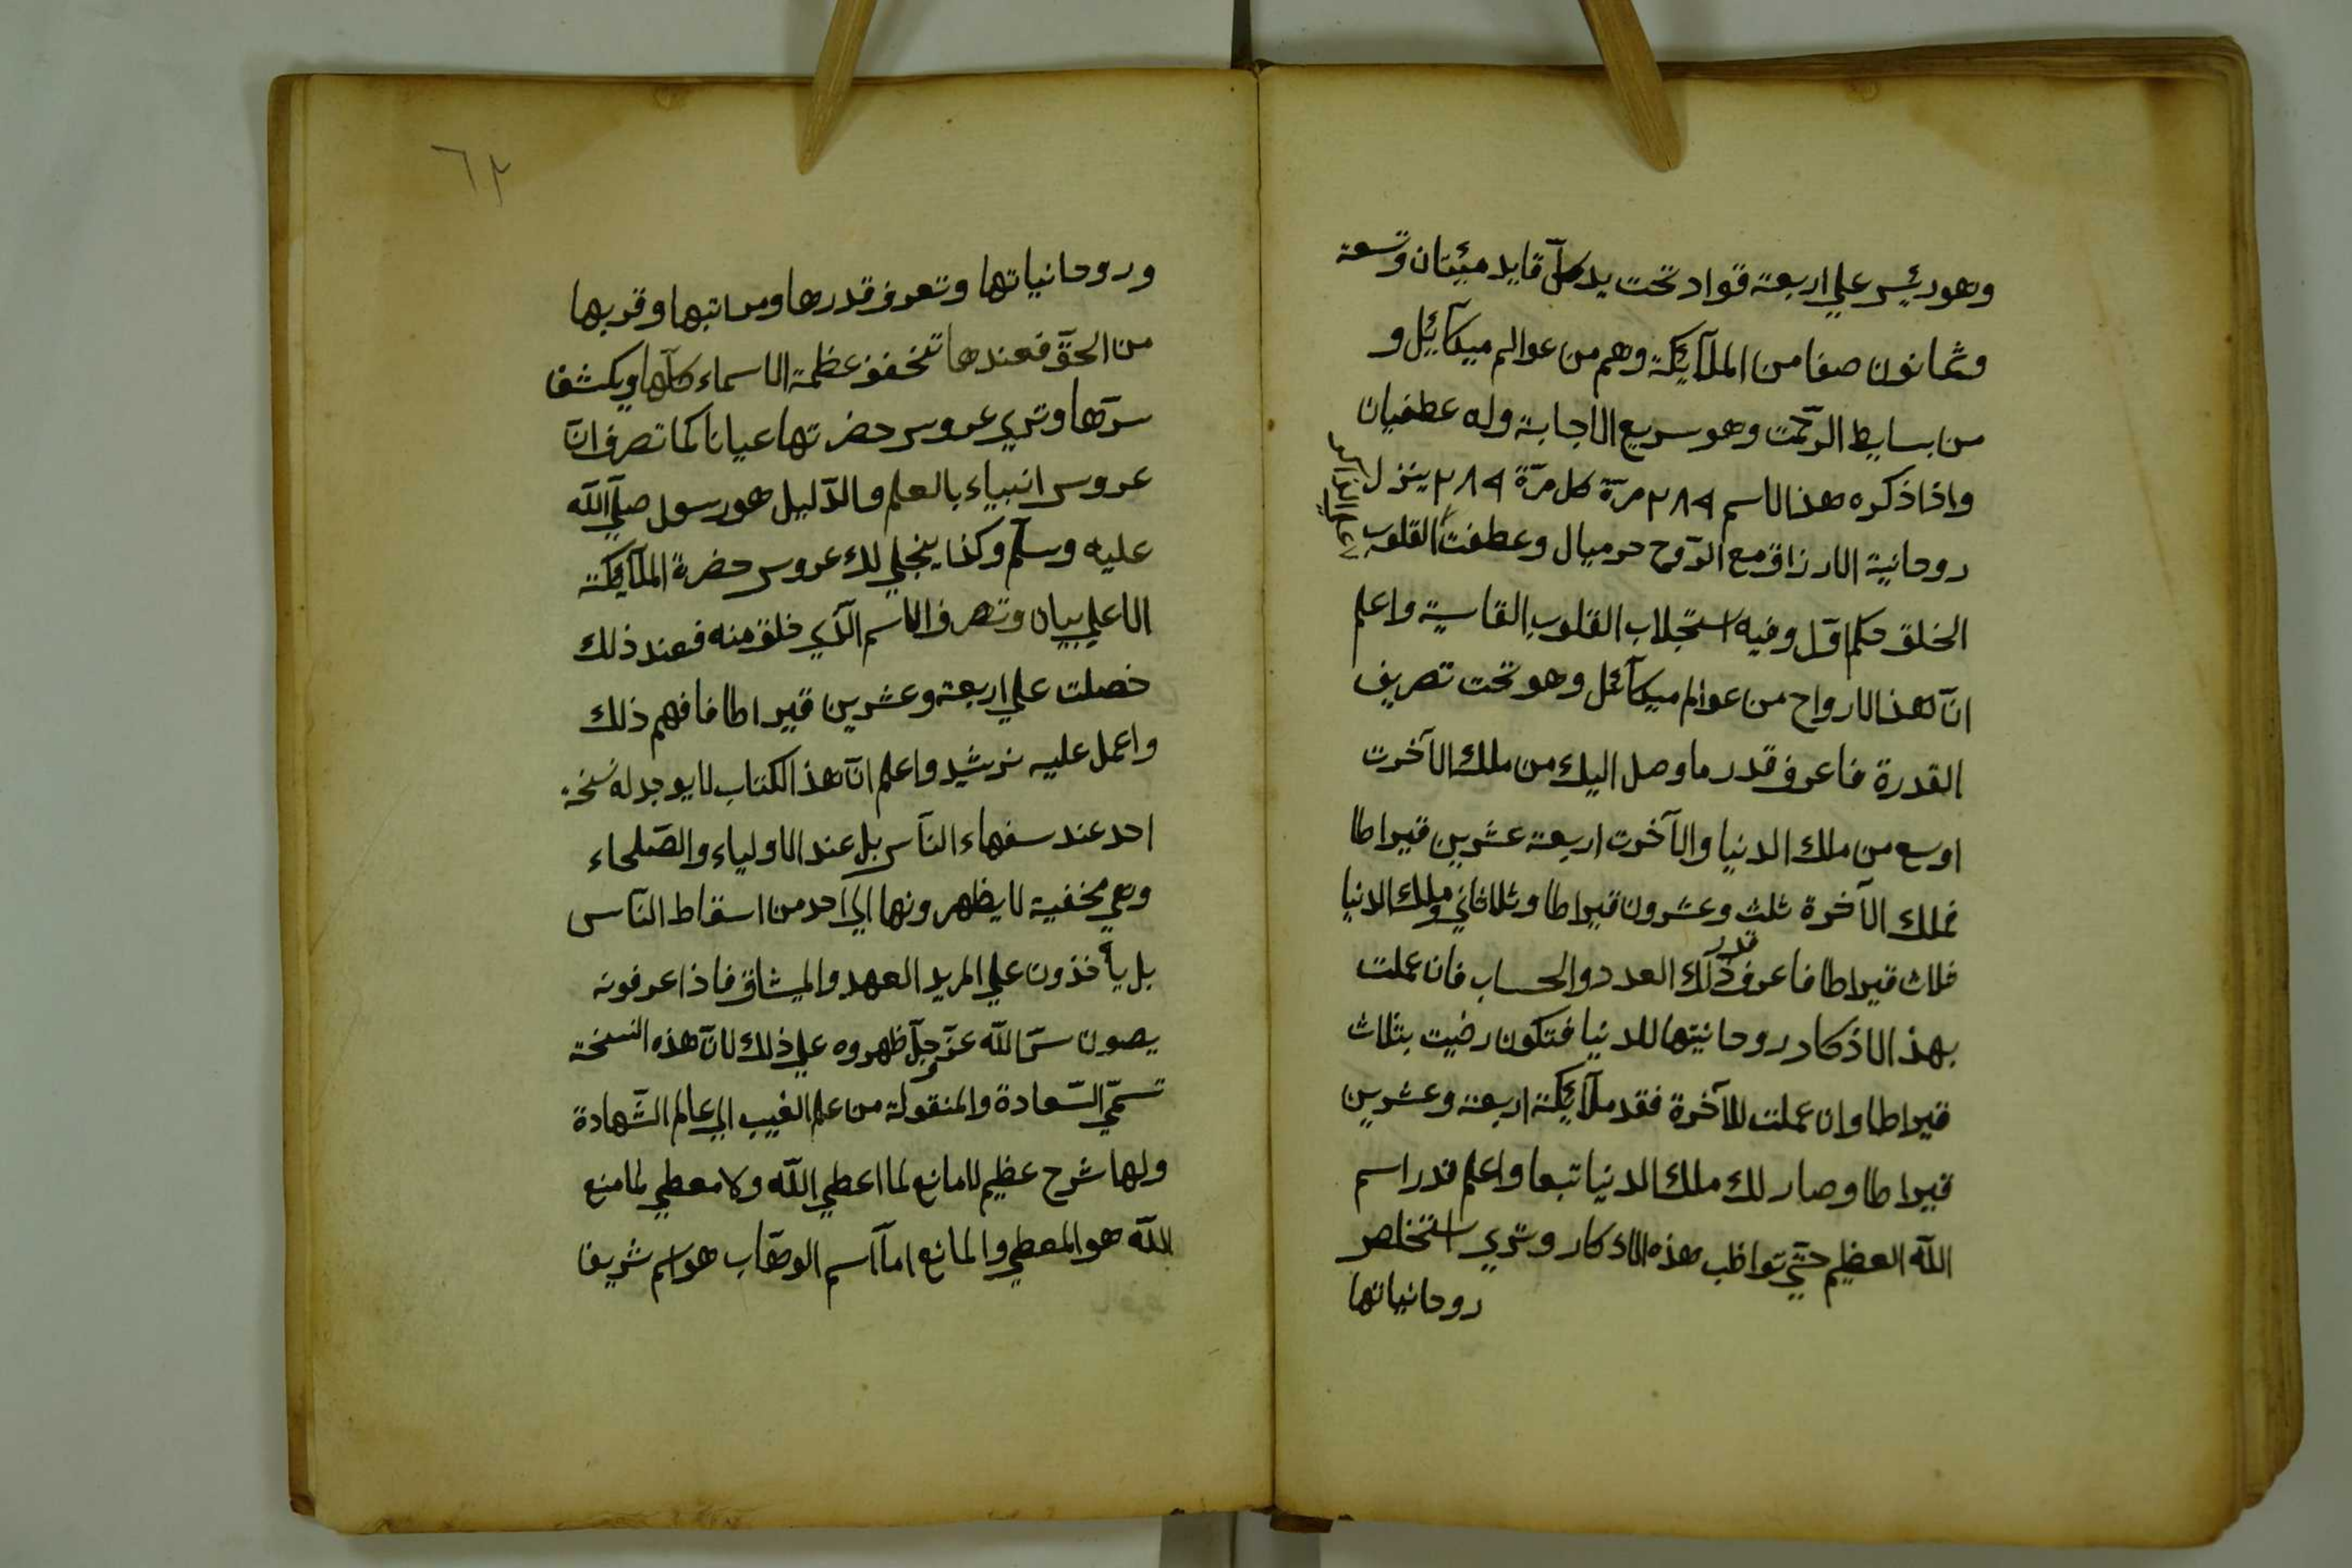 وهو رئيس علي اربعة قواد تحت يد كلّ قايد مئيتان وتسعة
وثمانون صفا من الملآئكة وهم من عوالم ميكآئيل و
من بسايط الرّحمت وهو سريع الاجابة وله عطفيان
واذا ذكره هذا الاسم ٢٨٩ مرّة كل مرّة ٢٨٩ ينزل
علي الذاكر
روحانية الارزاق مع الرّوح حرميال وعطفت القلوب
الخلق وفيه استجلاب القلوب القاسية واعلم
انّ لهذا الارواح من عوالم ميكآئل وهو تحت تصريف
القدرة فاعرف قدر ما وصل اليك من ملك الآخرت
اوسع من ملك الدنيا والآخرت اربعة عشرين قيراطا
فملك الآخرة ثلث وعشرون قيراطا وملك الدنيا
ثلاث قيراطا فاعرف قدر ذلك العدد والحساب فان عملت
بهذا الاذكار روحانيتها للدنيا فتكون رضيت بثلاث
قيراطا وان عملت للآخرة فقد ملآئكة اربعة وعشرين
قيراطا وصار لك ملك الدنيا تبعا واعلم قدر اسم
اللّه العظيم حتّي تواظب هذه الاذكار وتري استخلص
روحانياتها
٦٢
وروحانياتها وتعرف قدرها ومراتبها وقربها
من الحقّ فعندها عظمة الاسماء كلّها ويكشف
سرّها وتري عروس حضرتها عيانا كما تصرف انّ
عروس انبياء بالعلم والدّليل هو رسول صلّي اللّه
عليه وسلّم وكذا ينجلي لك عروس حضرة الملآئكة
الاعلي بيان وتصرف الاسم الّذي خلق منه فعند ذلك
حصلت علي اربعة وعشرين قيراطا فافهم ذلك
واعمل عليه ترشيد واعلم انّ هذا الكتاب لا يوجد له نسخة
احد عند سفهاء النّاس بل عند الاولياء والصّلحاء
وهي مخفية لا يظهرونها الي احد من اسقاط النّاس
بل يأخذون علي المريد العهد والميشاق فاذا عرفونه
يصون سرّ اللّه عزّ وجلّ ظهروه علي ذلك لانّ هذه النسخة
تسمّي السّعادة والمنقولة من علم الغيب الي عالم الشّهادة
ولها شرح عظيم لا مانع لما اعطي اللّه ولا معطي لما منع
اللّه هو المعطي والمانع امآ اسم الوهّاب هو اسم شريف